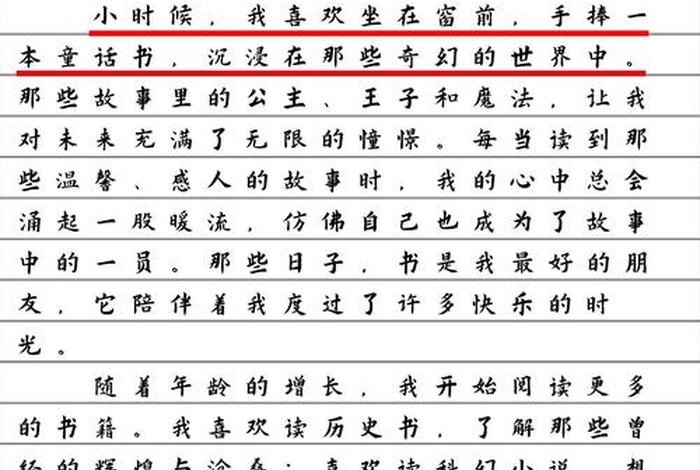 小时候，我喜欢坐在窗前，手捧一
本童话书，沉浸在那些奇幻的世界中。
那些故事里的公主、王子和魔法，让我
对未来充满了无限的憧憬。每当读到那
些温馨、感人的故事时，我的心中总会
涌起一股暖流，仿佛自己也成为了故事
中的一员。那些日子，书是我最好的朋
友，它陪伴着我度过了许多快乐的时
光。
随着年龄的增长，我开始阅读更多
的书籍。我喜欢读历史书，了解那些曾
经的辉煌与沧桑；喜欢读科幻小说，想